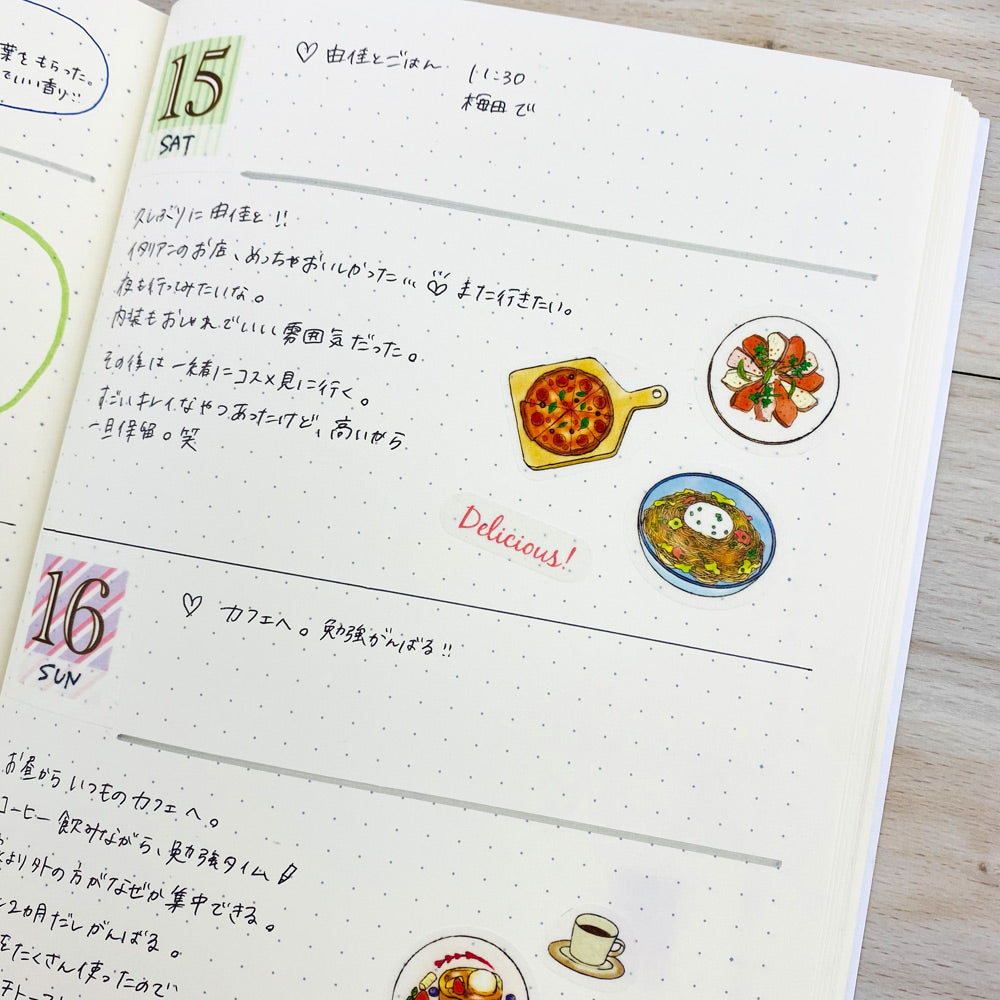 葉をもらった。
ていい香り!!
15
SAT
♡ 由佳とごはん 11:30
梅田で
久しぶりに由佳と!!
イタリアンのお店、めっちゃおいしかった… ♡ また行きたい。
夜も行ってみたいな。
内装もおしゃれでいいし雰囲気だった。
その後は一緒にコスメ見に行く。
すごいキレイなやつあったけど、高いから
一旦保留。笑
Delicious!
16
SUN
♡ カフェへ。勉強がんばる!!
お昼からいつものカフェへ。
コーヒー飲みながら、勉強タイム
より外の方がなぜか集中できる。
2ヵ月だしがんばる。
をたくさん使ったので